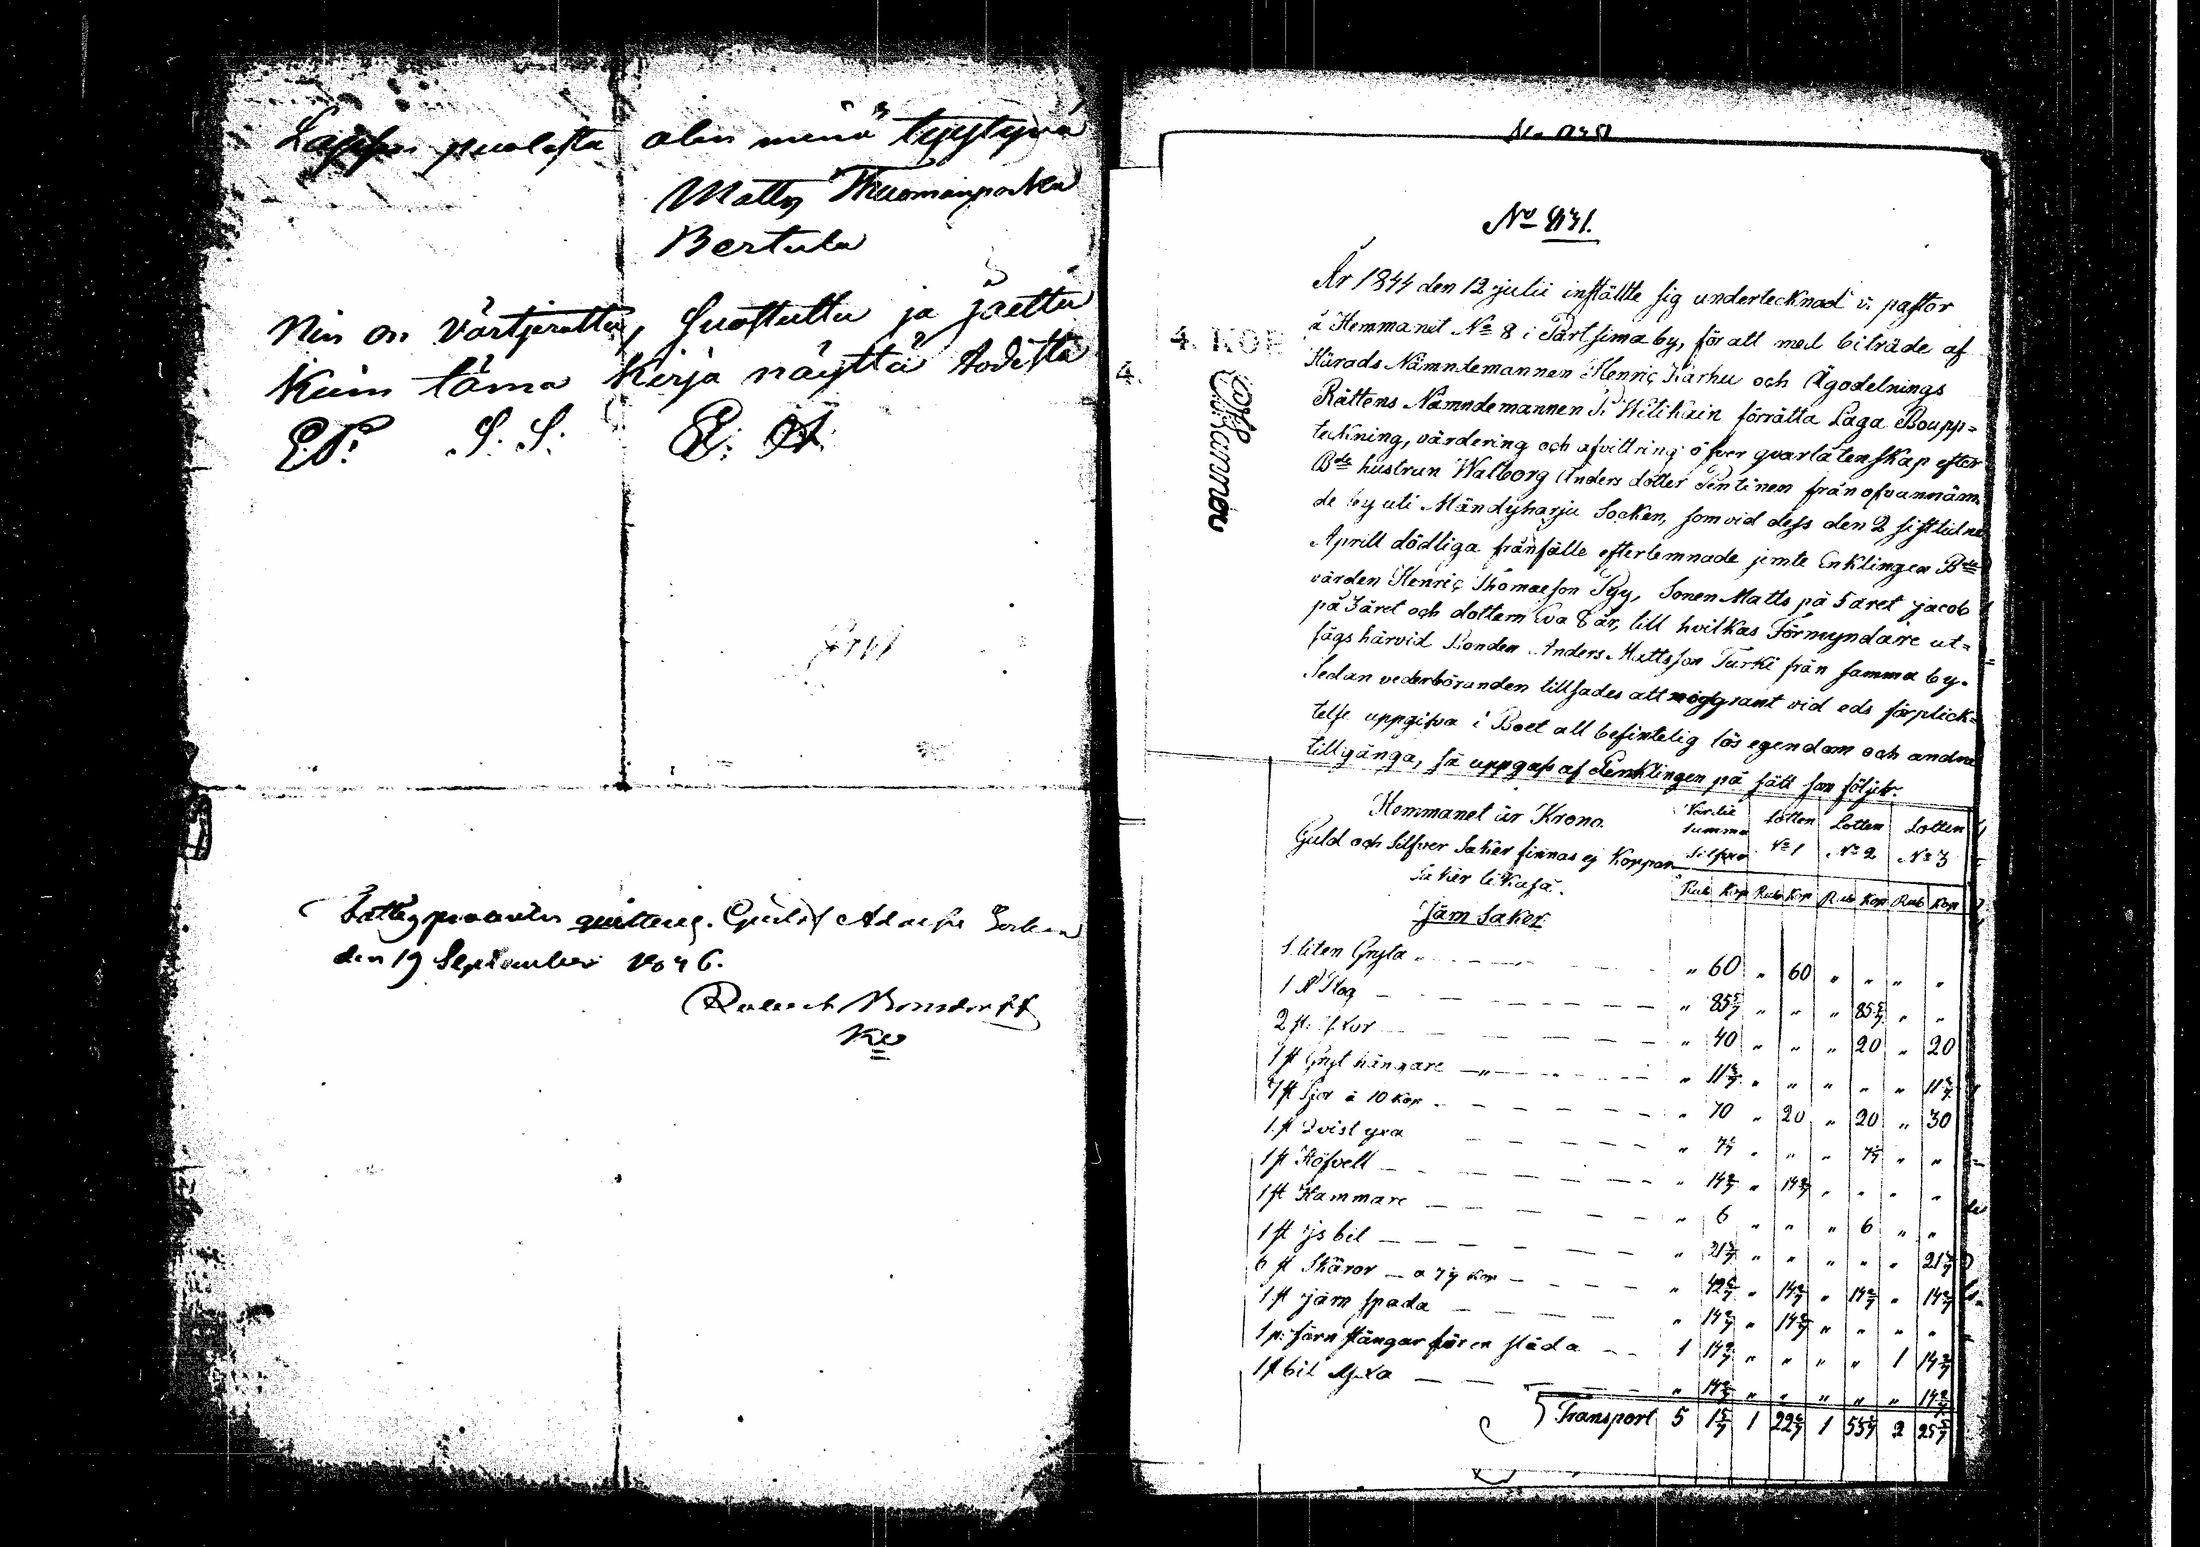 Lasten puolesta olen minä tyytyvä
Matts Thuomanpoika
Bertula
Nin on värtjerattu, suostuttu ja jaettu
kuin tämä kirja näyttä todista
S. S.
Fattigprocenten qvitteras. Gustaf Adolfs Socken
den 19 September 1846.
Robert Bonsdorff
År 1844 den 12 julii instälte sig undertecknad v. pastor
å Hemmanet No 8 i Pärtsima by, för att med biträde af
Härads Nämndemannen Henric Karhu och Ägodelnings
Rättens Nämndemannen P. Wilikain förrätta Laga Boupp=
teckning, värdering och afvittring öfver qvarlåtenskap efter
Bde hustrun Walborg Anders dotter Pentinen från ofvannäm
de by uti Mändyharju Socken, som vid dess den 2 sistlidne
Aprill dödliga frånfälle efterlemnade jemte Enklingen Bde
värden Henric Thomasson Pyy, Sonen Matts på 5 året jacob
på 3 året och dottern Eva 8 år, till hvilkas Förmyndare ut=
sågs härvid Bonden Anders Mattsson Turki från samma by.
Sedan vederböranden tillsades att noggrant vid eds förplick=
telse uppgifva i Boet all befintelig lös egendom och andra
tillgånga, så uppgafs af Enklingen på sätt som följer:
Hemmanet är Krono. Värdie summa Silfver Lotten No 1 Lotten No 2 Lotten No 3
Guld och Silfver Saker finnas ej Koppar
Saker likaså. Rub Kop Rub Kop Rub Kop Rub Kop
Järn Saker
1 liten Gryta " 60 " 60 " " " "
1 " 85 5/7 " " " 85 5/7 " "
2 st. " 40 " " " 20 " 20
1 st Gryt hängare " 11 3/7 " " " " " 11 3/7
7 st à 10 Kop " 70 " 20 " 20 " 30
1 st Qvist yxa " 7 1/7 " " " 7 1/7 " "
1 st Höfvell " 14 2/7 " 14 2/7 " " " "
1 st Hammare " 6 " " " 6 " "
1 st js bil " 21 3/7 " " " " " 21 3/7
6 st Skäror a 7 1/7 Kop " 42 6/7 " 14 2/7 " 14 2/7 " 14 2/7
1 st järn spada " 14 2/7 " 14 2/7 " " " "
1 p: järn stängar för en släda 1 14 2/7 " " " " 1 14 2/7
1 st bil " 14 2/7 " " " " " 14 2/7
Transport 5 1 5/7 1 22 6/7 1 53 4/7 2 25 2/7